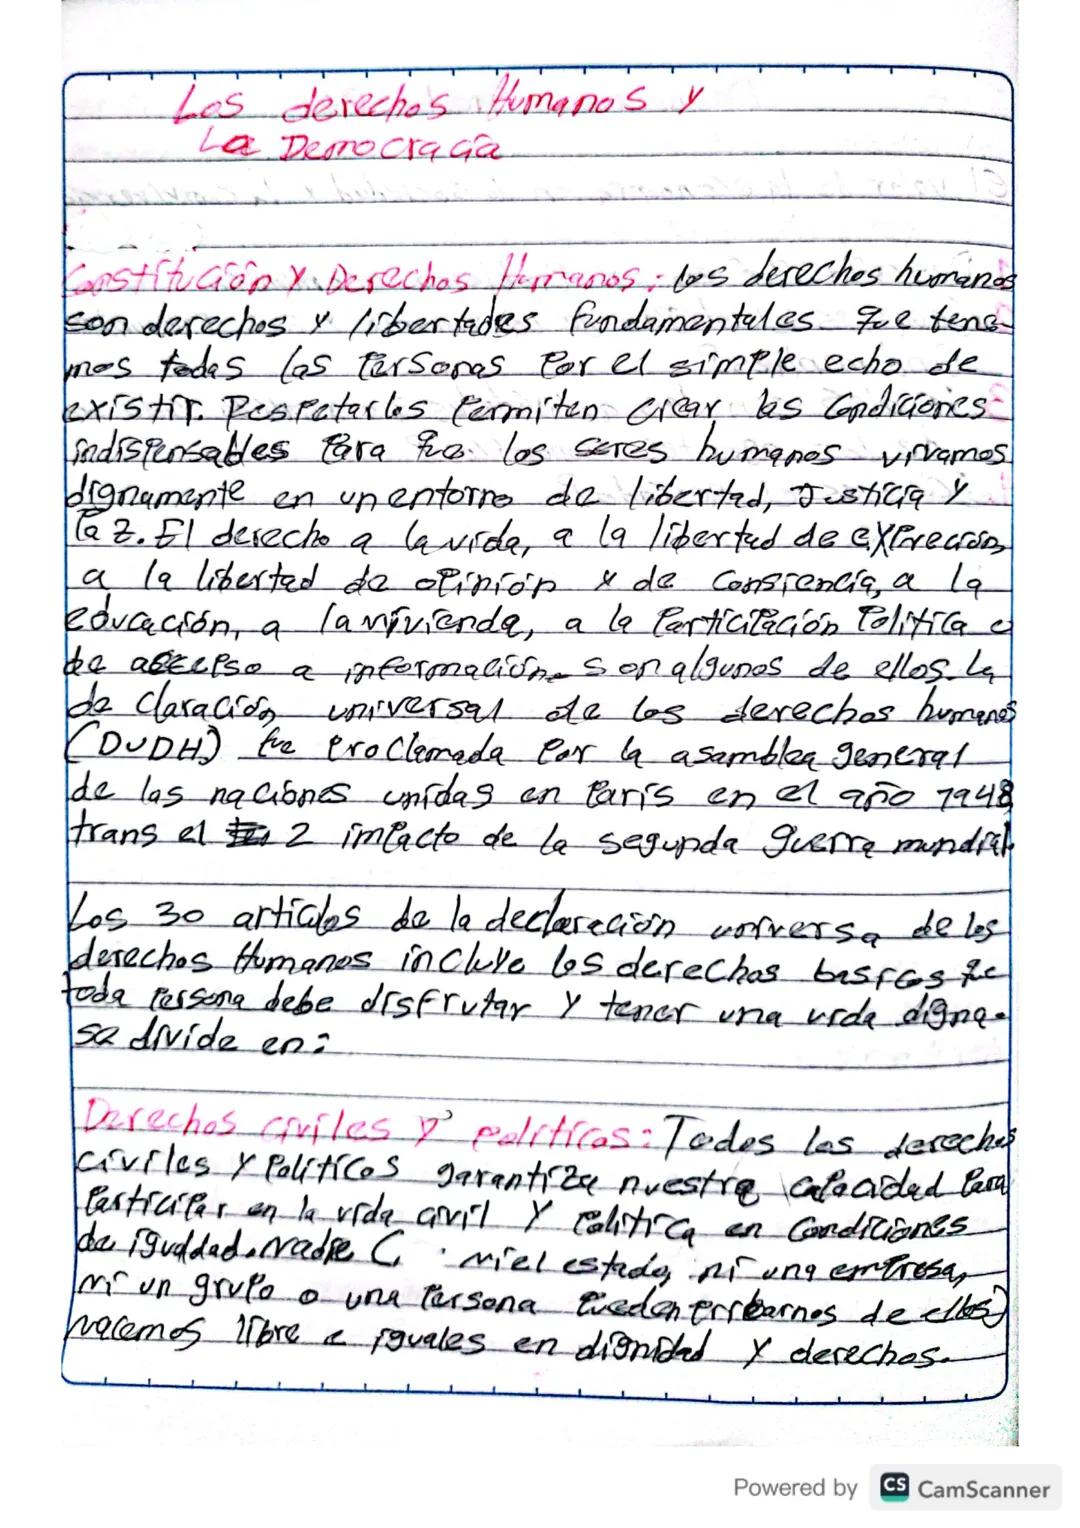 Los derechos Humanos y
La Democracia
Constitución y Derechos Humanos: los derechos humanos
son derechos y libertades fundamentales que tene-
mos todas las Personas Por el simple echo de
existir. Respetarlos Permiten crear las Condiciones
indispensables Para que los seres humanos vivamos
dignamente en un entorno de libertad, Justicia y
Paz. El derecho a la vida, a la libertad de expreción,
a la libertad de opinión y de Consiencia, a la
educación, a la vivienda, a la Participación Politica e
de a información son algunos de ellos. La
de claración universal de los derechos humanos
(DUDH) fue proclamada Por la asamblea general
de las naciones unidas en Paris en el año 1948
trans el 2 impacto de la segunda guerra mundial
Los 30 articulos de la declaración universa de los
derechos Humanos incluye los derechos basicos que
toda Persona debe disfrutar y tener una vida digna.
se divide en:
Derechos civiles y politicos: Todos los derechos
civiles y Politicos garantiza nuestra capacidad Para
Participar en la vida civil y Politica en Condiciones
de igualdad. Nadie ( . ni el estado, ni una empresa,
ni un grupo o una Persona Pueden pribarnos de ellos)
nacemos libre e iguales en dignidad y derechos.
Powered by CS CamScanner